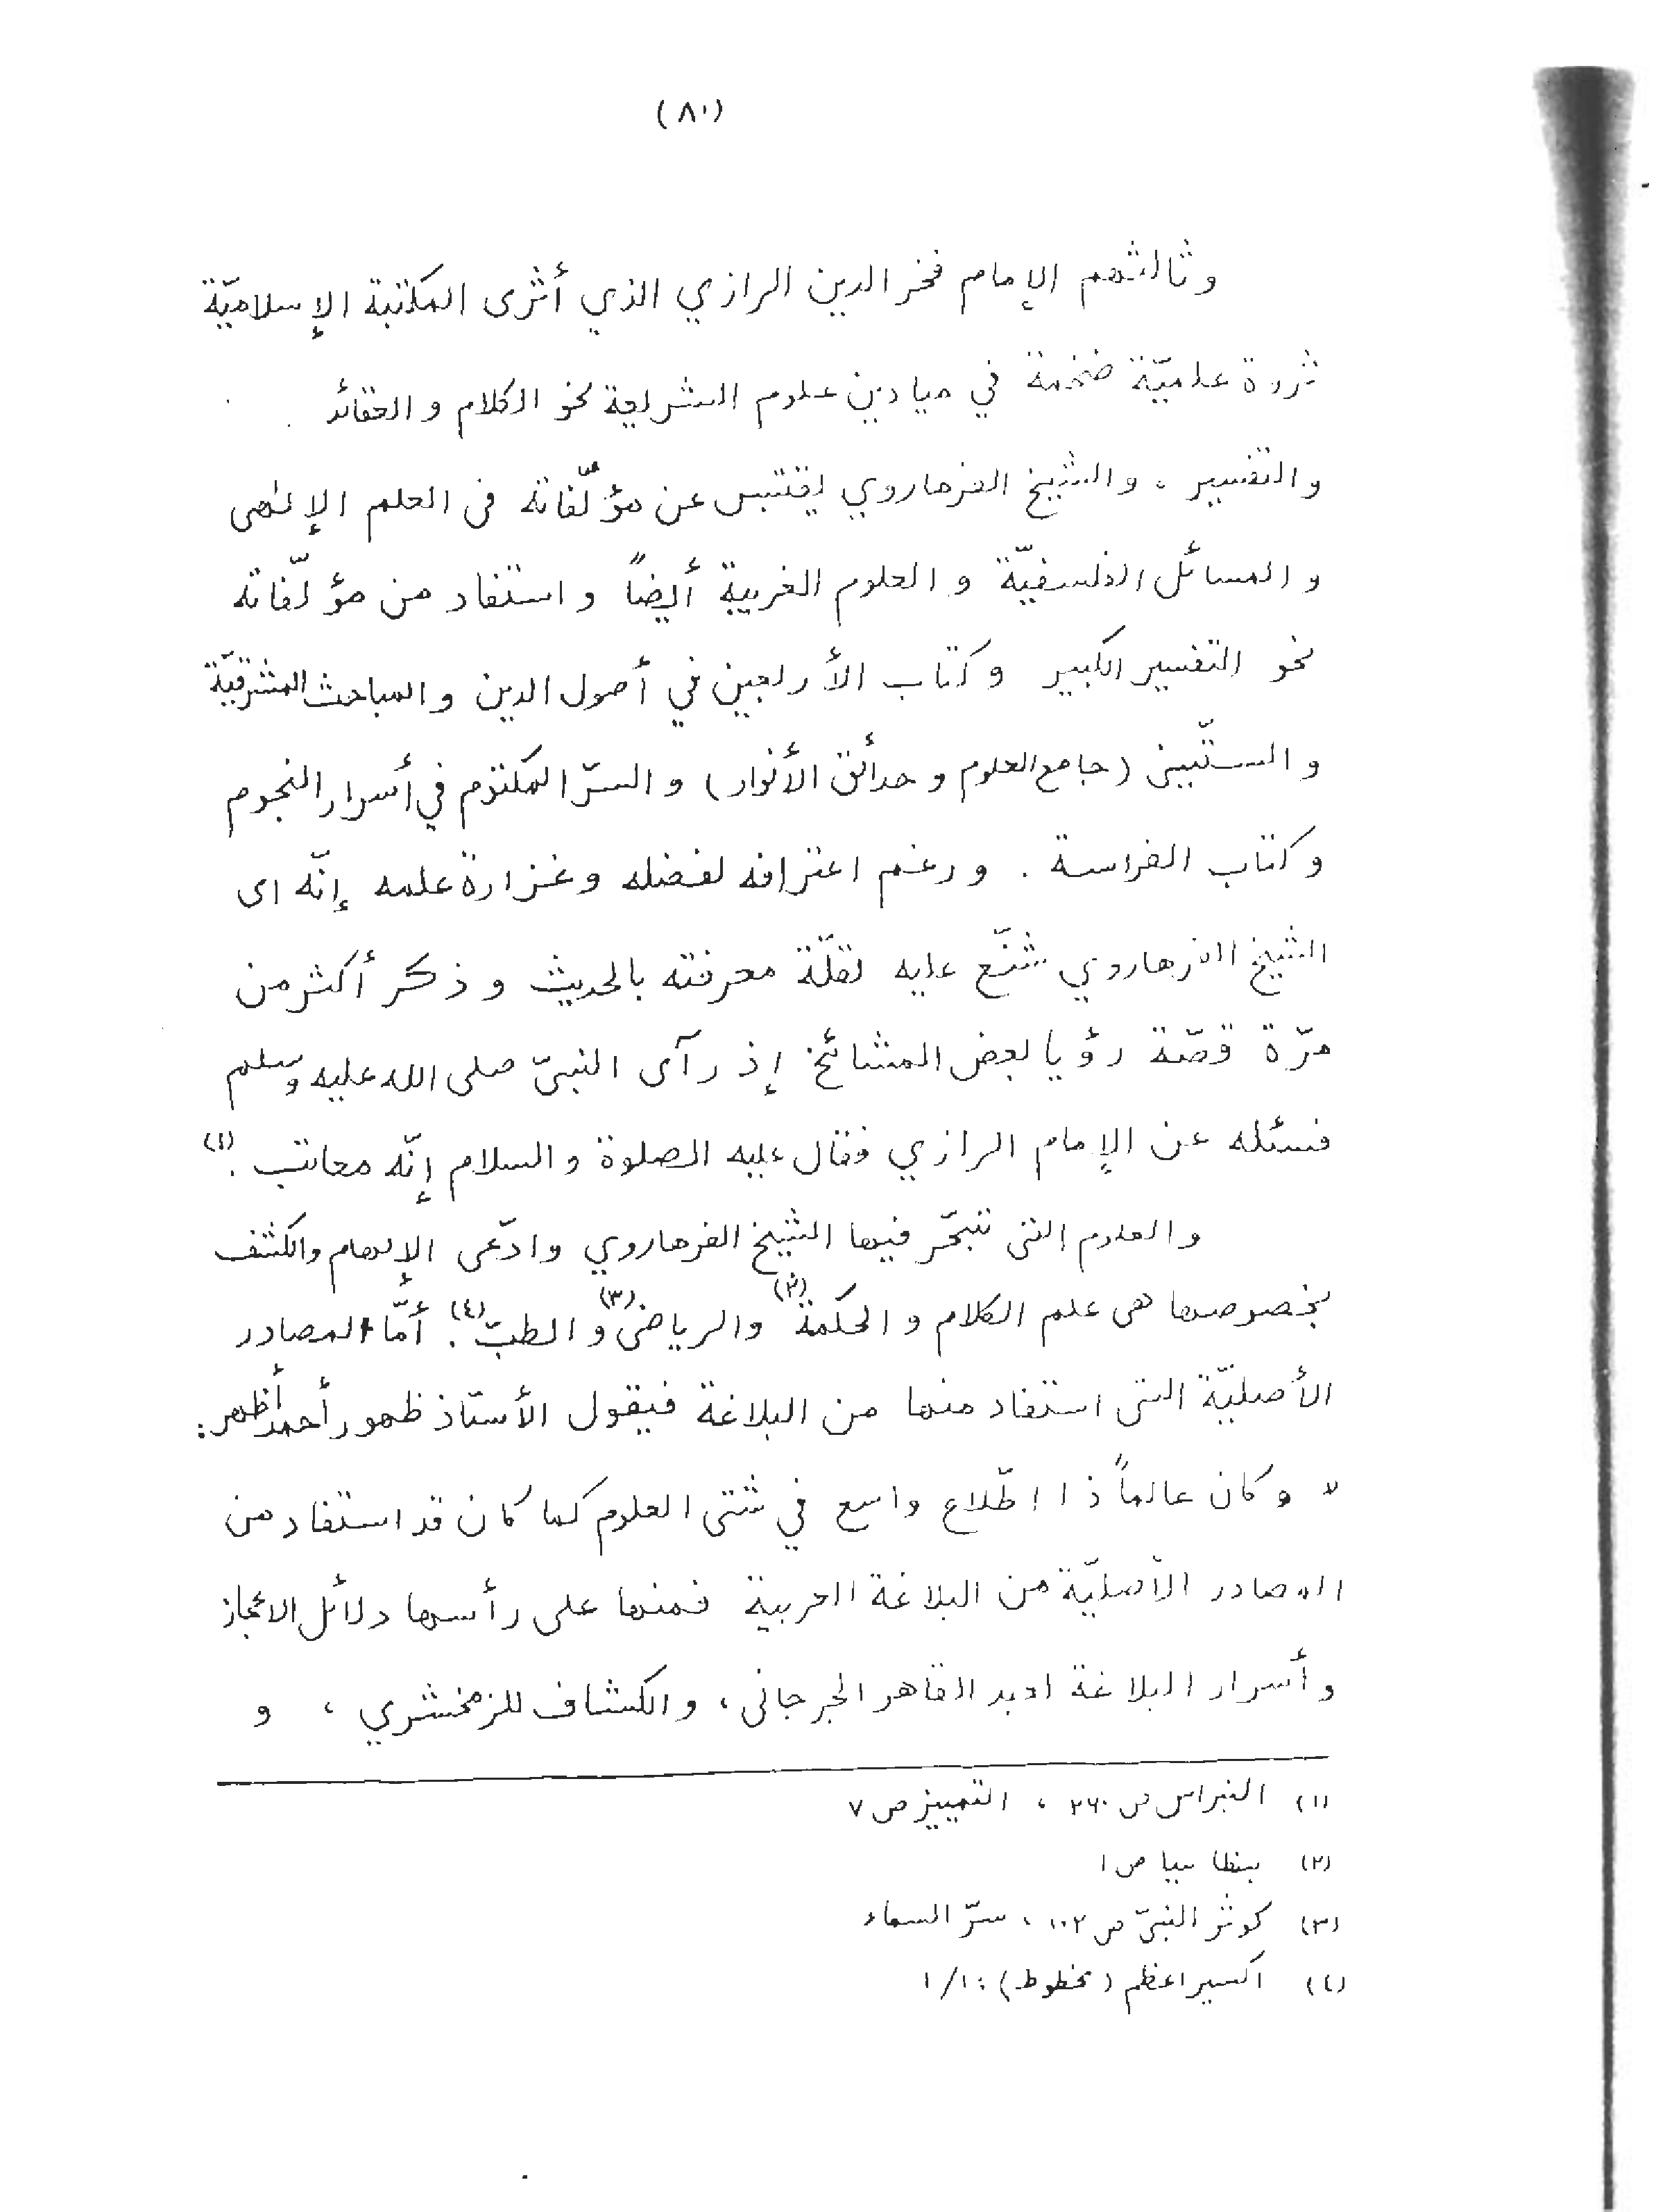 (٨٠)
وثالثهم الإمام فخر الدين الرازي الذي أثرى المكتبة الإسلاميّة
ثروة علميّة ضخمة في ميادين علوم الشريعة نحو الكلام و العقائد .
والتفسير ، والشيخ الفرهاروي يقتبس عن مؤلّفاته فى العلم الإلٰهى
و المسائل الفلسفيّة و العلوم الغريبة أيضاً و استفاد من مؤلّفاته
نحو التفسير الكبير و كتاب الأربعين في أصول الدين و المباحث المشرقيّة
و الستّين (جامع العلوم و حدائق الأنوار) و السرّ المكتوم في أسرار النجوم
و كتاب الفراسة . و رغم اعترافه لفضله و غزارة علمه إنّه اى
الشيخ الفرهاروي شنّع عليه لقلّة معرفته بالحديث و ذكر أكثر من
مرّة قصّة رؤيا لبعض المشائخ إذ رآى النبيّ صلى الله عليه وسلم
فسئله عن الإمام الرازي فقال عليه الصلوة و السلام إنّه معاتب . (١)
و العلوم التى تبحّر فيها الشيخ الفرهاروي وادّعى الإلهام والكشف
بخصوصها هى علم الكلام و الحكمة (٢) والرياضى (٣) و الطبّ (٤) . أمّا المصادر
الأصليّة التى استفاد منها من البلاغة فيقول الأستاذ ظهور أحمد أظهر :
" و كان عالماً ذا اطّلاع واسع في شتى العلوم كما كان قد استفاد من
المصادر الأصليّة من البلاغة العربية فمنها على رأسها دلائل الاعجاز
و أسرار البلاغة لعبد القاهر الجرجانى ، و الكشاف للزمخشري ، و
(١) النبراس ص ٢٦٠ ، التمييز ص ٧
(٢) ص ١
(٣) كوثر النبيّ ص ١٠٢ ، سرّ السماء
(٤) اكسير اعظم (مخطوط) : ١/١